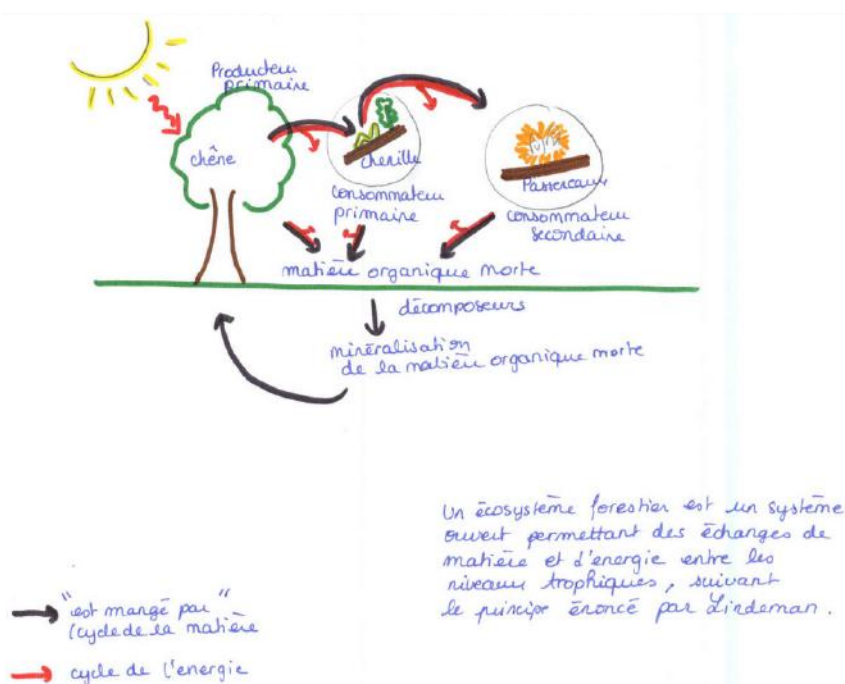 Producteur
primaire
chêne
chenille
consommateur
primaire
Passereaux
consommateur
secondaire
matière organique morte
décomposeurs
minéralisation
de la matière organique morte
Un écosystème forestier est un système
ouvert permettant des échanges de
matière et d'énergie entre les
niveaux trophiques, suivant
le principe énoncé par Lindeman.
"est mangé par"
(cycle de la matière
cycle de l'energie